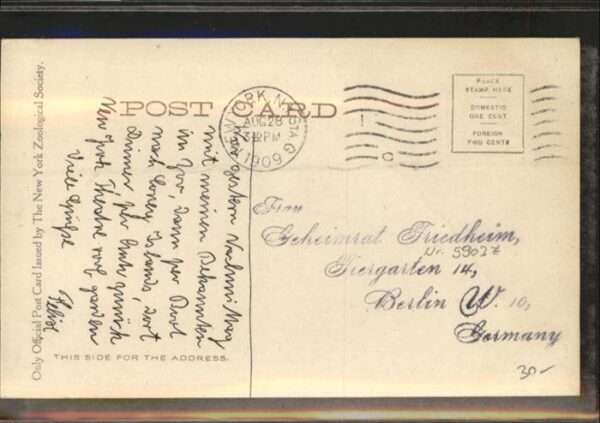 Only Official Post Card Issued by The New York Zoological Society.
POST CARD
NEW YORK N.Y. STA G
AUG 28
3 30 PM
1909
PLACE
STAMP HERE
DOMESTIC
ONE CENT
FOREIGN
TWO CENTS
War gestern Nachmittag
mit meinen Bekannten
im Zoo, dann per Boot
nach Coney Island, dort
Dinner, per Bahn zurück
New York Theatre roof garden
Viele Grüße
Felix
Frau
Geheimrat Friedheim,
Nr. 59027
Tiergarten 14,
Berlin W. 10,
Germany
THIS SIDE FOR THE ADDRESS.
30-